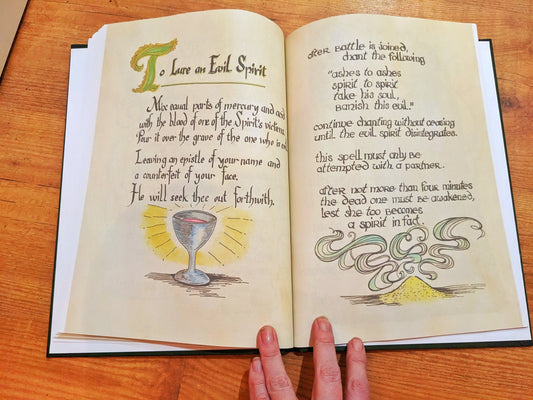 To Lure an Evil Spirit
Mix equal parts of mercury and acid
with the blood of one of the Spirit's victims
Pour it over the grave of the one who is evil
Leaving an epistle of your name and
a counterfeit of your face.
He will seek thee out forthwith.
after battle is joined,
chant the following
"ashes to ashes
spirit to spirit
take his soul,
banish this evil."
continue chanting without ceasing
until the evil spirit disintegrates.
this spell must only be
attempted with a partner.
after not more than four minutes
the dead one must be awakened,
lest she too becomes
a spirit in fact.